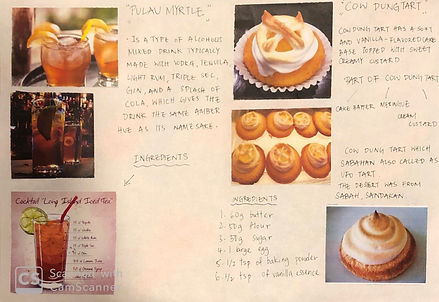 "PULAU MYRTLE"
· IS A TYPE OF ALCOHOLIC
MIXED DRINK TYPICALLY
MADE WITH VODKA, TEQUILA,
LIGHT RUM, TRIPLE SEC,
GIN, AND A SPLASH OF
COLA, WHICH GIVES THE
DRINK THE SAME AMBER
HUE AS ITS NAMESAKE.
INGREDIENTS
Cocktail "Long Island Iced Tea"
CS Scanned with
CamScanner
"COW DUNG TART"
COW DUNG TART HAS A SOFT
AND VANILLA-FLAVORED CAKE
BASE TOPPED WITH SWEET
CREAMY CUSTARD.
PART OF COW DUNG TART
CAKE BATTER MERINGUE
CREAM
CUSTARD
COW DUNG TART WHICH
SABAHAN ALSO CALLED AS
UFO TART
THE DESERT WAS FROM
SABAH, SANDAKAN.
INGREDIENTS
1. 60g butter
2. 50g flour
3. 50g sugar
4. 1 large egg
5. 1/2 tsp of baking powder
6. 1/2 tsp of vanilla essence